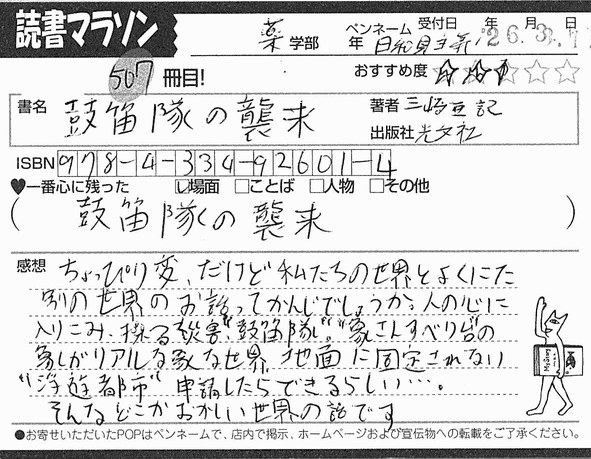 読書マラソン
薬 学部 年 ペンネーム 日和見主義 受付日 '26.3.7 年 月 日
507 冊目! おすすめ度 ☆☆☆☆☆
書名 鼓笛隊の襲来 著者 三崎亜記
出版社 光文社
ISBN 978-4-334-92601-4
♥一番心に残った ☑場面 □ことば □人物 □その他
( 鼓笛隊の襲来 )
感想 ちょっぴり変、だけど私たちの世界とよくにた
別の世界のお話ってかんじでしょうか。人の心に
入りこみ、操る災害"鼓笛隊"。"象さんすべり台"の
象しがリアルな象な世界、地面に固定されない
"浮遊都市" 申請したらできるらしい…。
そんなどこかおかしい世界の話です
●お寄せいただいたPOPはペンネームで、店内で掲示、ホームページおよび宣伝物への転載をご了承ください。